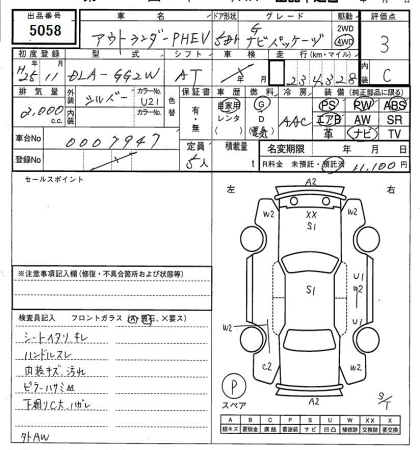 出品番号 車名 ドア形状 グレード 駆動 評価点
5058 アウトランダーPHEV 5ドア G ナビパッケージ 2WD 4WD 3
初度登録 型式 シフト 車検 走行(km・マイル) 内装
H25 11 DLA-GG2W AT 23,432.8 C
排気量 外装 シルバー カラーNo. U21 色替 保証書 車歴 燃料 冷房 装備(純正部品に限る)
2,000 c.c. 内装 カラーNo. 有・無 自家用 レンタ G D 電気 AAC PS PW ABS
エアB AW SR
革 ナビ TV
車台No 0007947
登録No 定員 5人 積載量 t 名変期限 年 月 日
R料金 未預託・預託済 11,100円
セールスポイント
左 右
A2
W2 XX W2
S1
S1 U1
W2
U1
W2
C2
A2
P
スペア
S/T
※注意事項記入欄(修復・不具合箇所および状態等)
検査員記入 フロントガラス(A、要ス、X要ス)
シートイタリ、キレ
ハンドルスレ
内装キズ、汚れ
ピラーハサミ凹
下廻りC大、ハガレ
外AW
A B C P S U W XX X
線キズ 要板金 腐蝕 要塗装 サビ 凹凸 補修跡 交換跡 要交換